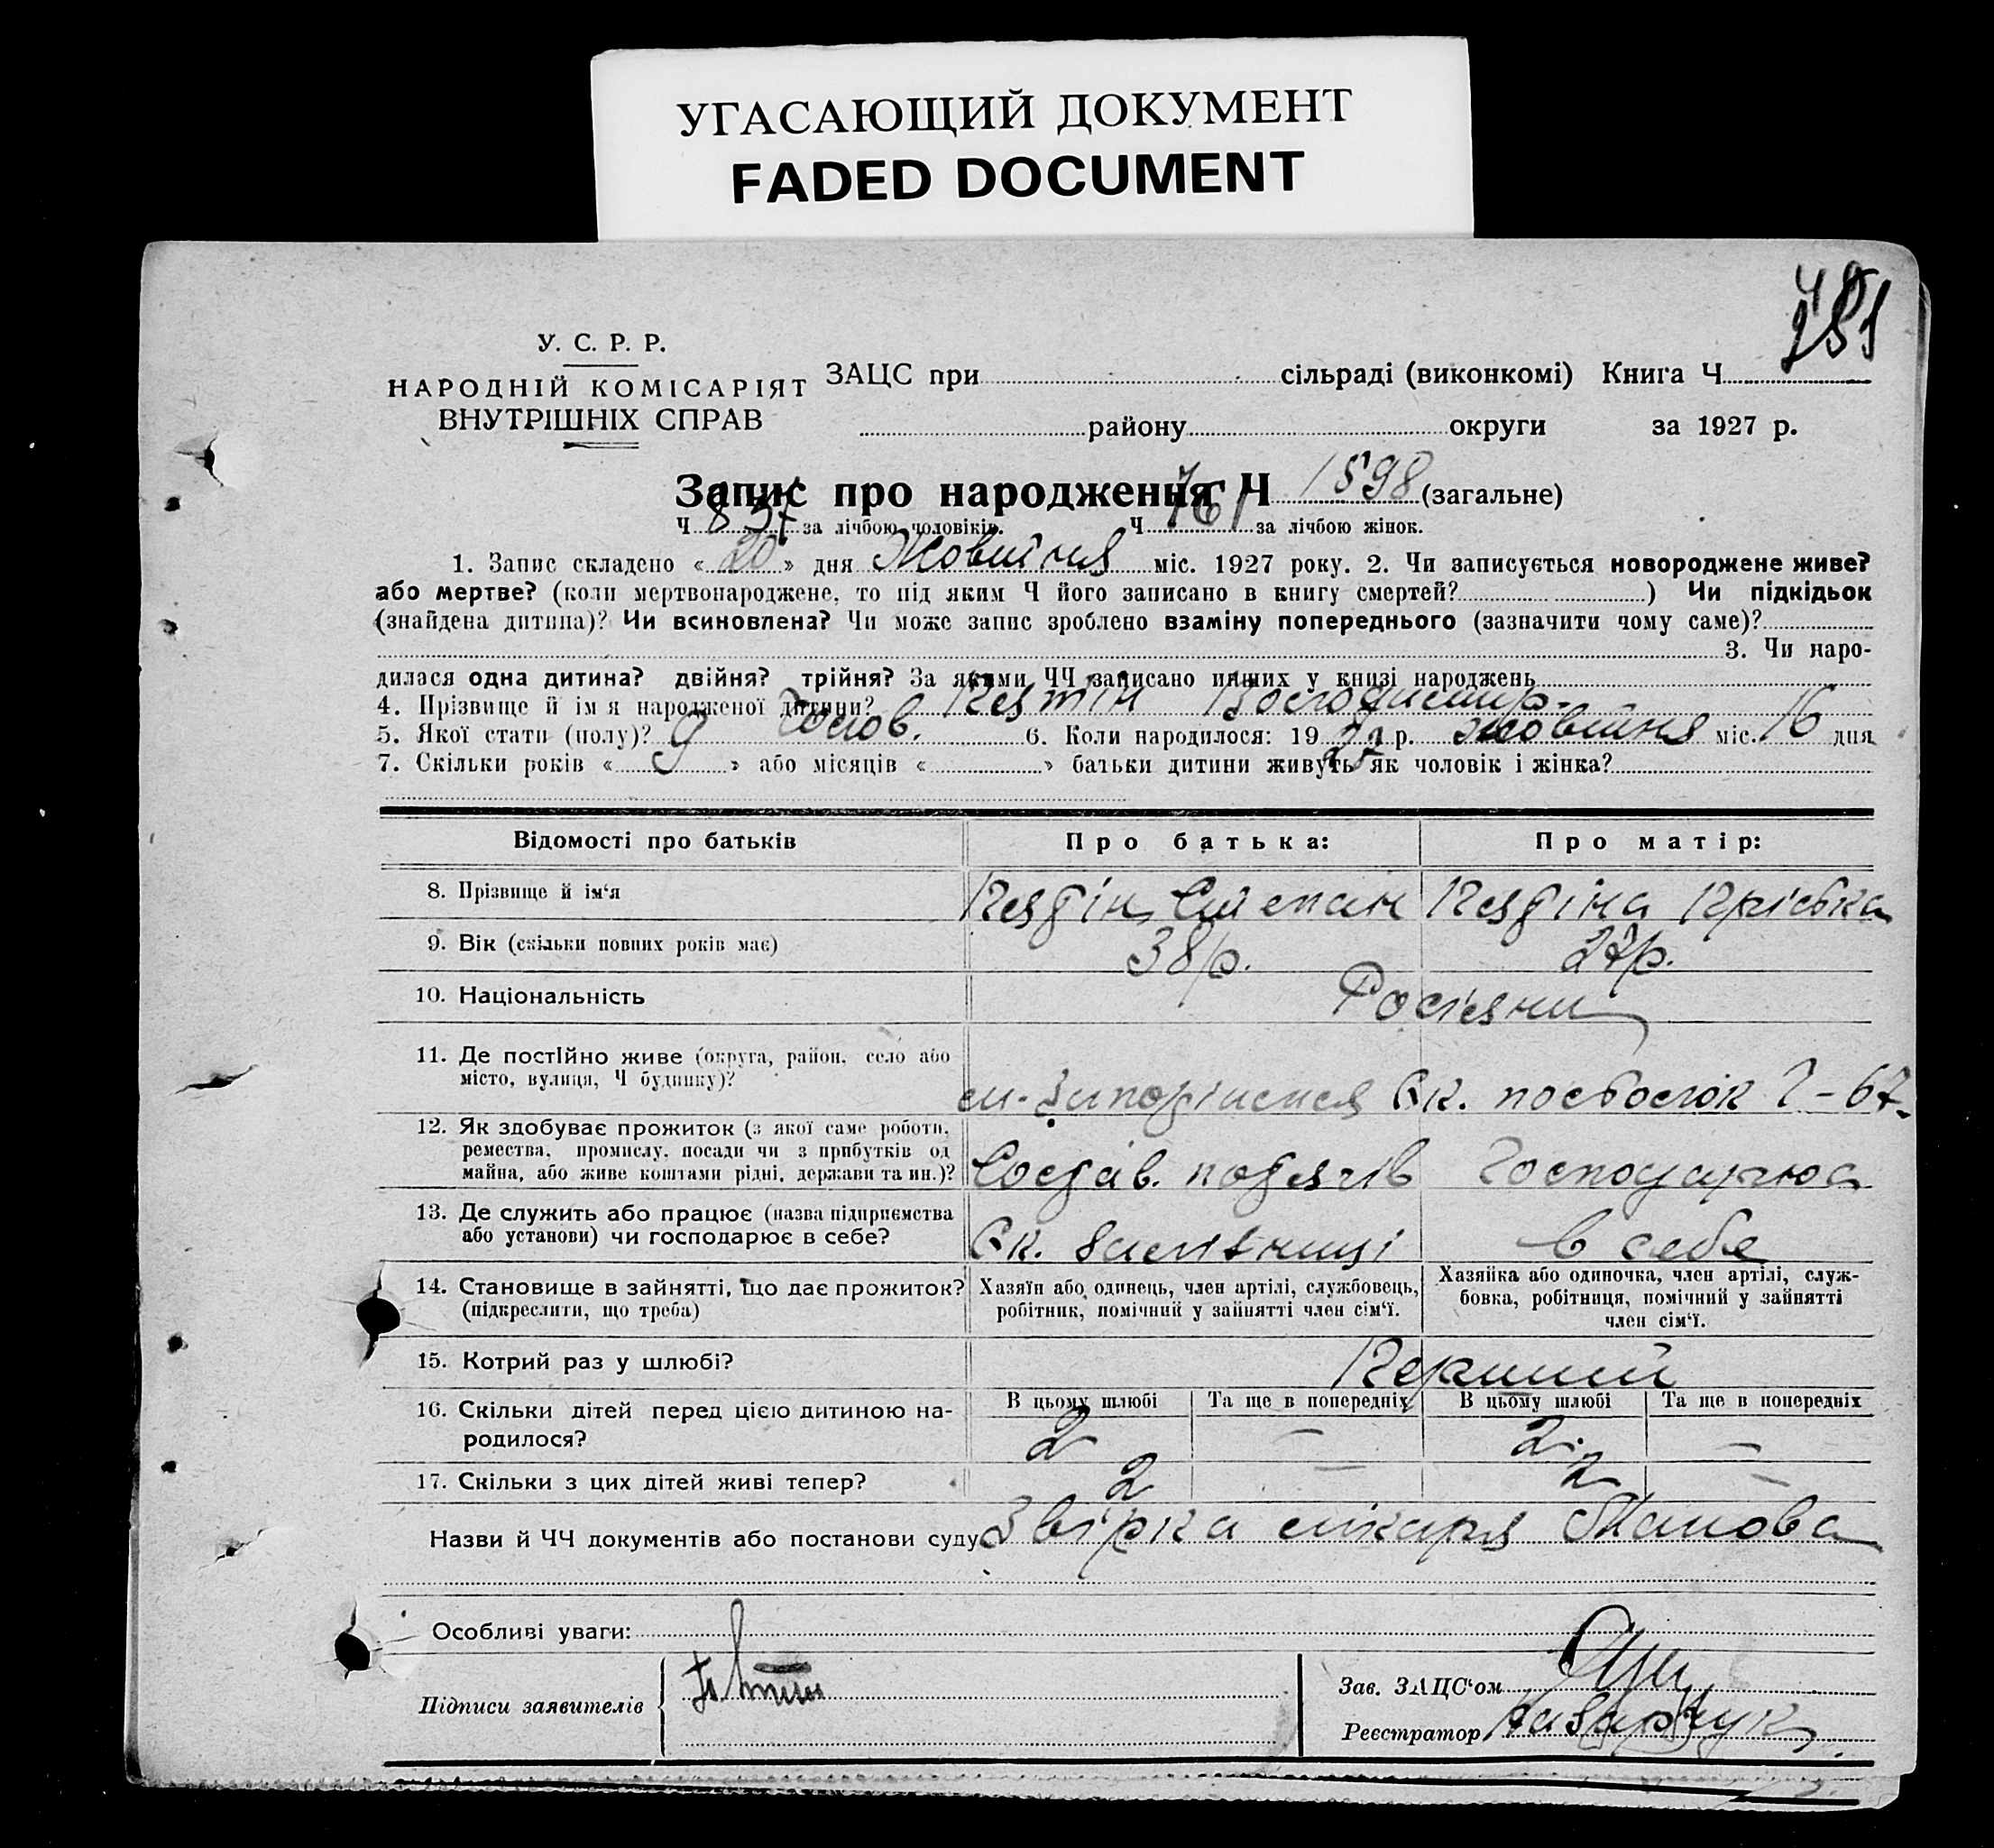 УГАСАЮЩИЙ ДОКУМЕНТ
FADED DOCUMENT
481
У. С. Р. Р.
НАРОДНІЙ КОМІСАРІЯТ
ВНУТРІШНІХ СПРАВ
ЗАЦС при сільраді (виконкомі) Книга Ч
району округи за 1927 р.
Запис про народження Ч 1598 (загальне)
Ч 837 за лічбою чоловіків. Ч 761 за лічбою жінок.
1. Запис складено « 20 » дня Жовтня міс. 1927 року. 2. Чи записується новороджене живе?
або мертве? (коли мертвонароджене, то під яким Ч його записано в книгу смертей? ) Чи підкідьок
(знайдена дитина)? Чи всиновлена? Чи може запис зроблено взаміну попереднього (зазначити чому саме)?
3. Чи наро-
дилася одна дитина? двійня? трійня? За якими ЧЧ записано инших у книзі народжень
4. Прізвище й ім я народженої дитини? Володимир
5. Якої стати (полу)? чолов. 6. Коли народилося: 19 27 р. Жовтня міс. 16 дня
7. Скільки років « 9 » або місяців « » батьки дитини живуть як чоловік і жінка?
Відомості про батьків Про батька: Про матір:
8. Прізвище й ім‘я Степан Пріська
9. Вік (скільки повних років має) 38 р. 27 р.
10. Національність Росіяни
11. Де постійно живе (округа, район, село або
місто, вулиця, Ч будинку)?
м. Запоріжжя посьолок 7-67
12. Як здобуває прожиток (з якої саме роботи,
ремества, промислу, посади чи з прибутків од
майна, або живе коштами рідні, держави та ин.)? поїздів Господарює
13. Де служить або працює (назва підприємства
або установи) чи господарює в себе? Ек. залізниці в себе
14. Становище в зайнятті, що дає прожиток?
(підкреслити, що треба)
Хазяїн або одинець, член артілі, службовець,
робітник, помічний у зайнятті член сім‘ї.
Хазяйка або одиночка, член артілі, служ-
бовка, робітниця, помічний у зайнятті
член сім‘ї.
15. Котрий раз у шлюбі? Перший
16. Скільки дітей перед цією дитиною на-
родилося?
В цьому шлюбі Та ще в попередніх В цьому шлюбі Та ще в попередніх
2 — 2 —
17. Скільки з цих дітей живі тепер? 2 — 2 —
Назви й ЧЧ документів або постанови суду Звірка лікаря
Особливі уваги:
Підписи заявителів
Зав. ЗАЦС‘ом
Реєстратор